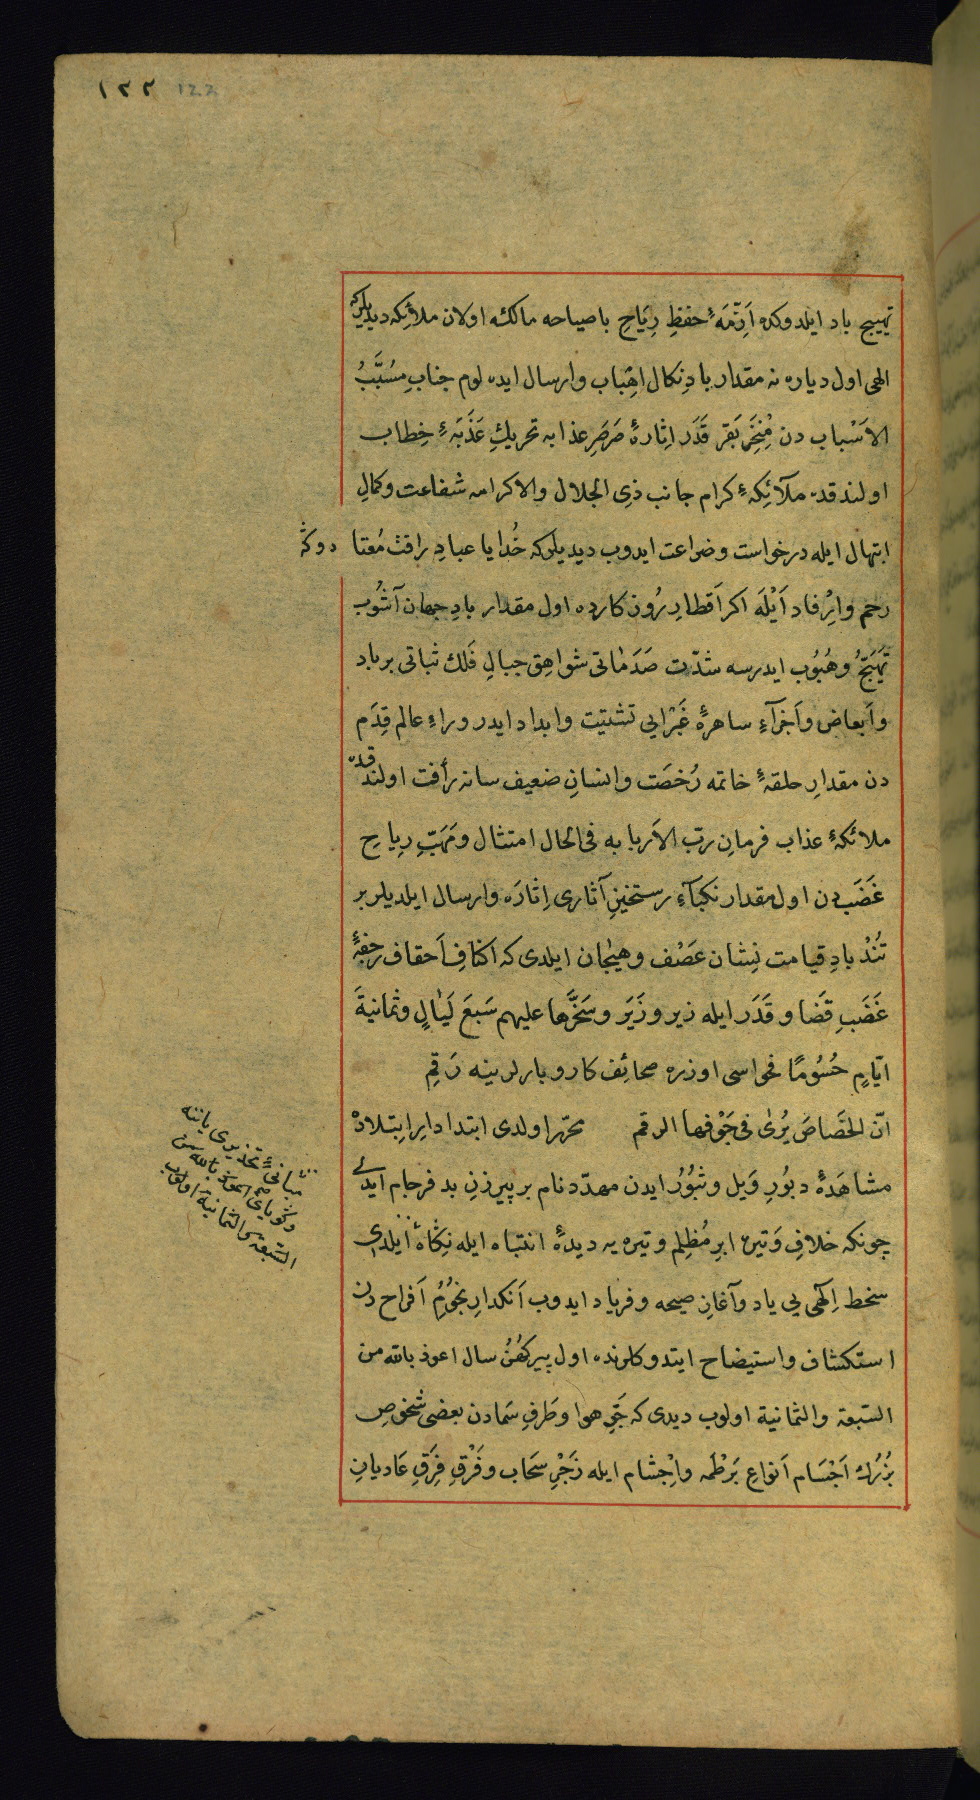 ١٢٢ 122
تهییج باد ایلدوکده اَزِمَّهٔ حفظِ رِیَاحِ با صیاحه مالك اولان ملائکه دیدیلرکه
الهی اول دیاره نه مقدار بادِ نکال اِهْبَاب وارسال ایده لوم جنابِ مُسَبَّبُ
الاَسْباب دن مِنْخَرِ بَقر قَدَر اِثارهٔ صَرصَرِ عذابه تحریكِ عَذَبَهٔ خِطاب
اولندقده ملآئِکهٔ کرام جانب ذِی الجلال والاکرامه شفاعت وکمالِ
ابتهال ایله درخواست وضراعت ایدوب دیدیلرکه خُدایا عبادِ رافت مُعتا دوکه
رحم واِرْفاد اَیْلَه اکر اَقطارِ رُوزکارده اول مقدار بادِ جهان آشُوب
تَهَیُّجْ وهُبُوب ایدرسه شدّت صَدَماتی شواهِق جبالِ فَلك ثباتی برباد
واَبعاض واَجْزآءِ ساهرهٔ غَبْرایی تشتیت وابداد ایدر وراءِ عالمِ قِدَم
دن مقدارِ حلقهٔ خاتمه رُخصَت وانسانِ ضعیف سانه رأفت اولندقده
ملائکهٔ عذاب فرمانِ ربّ الاَربابه فی الحال امتثال ومَهَبِّ رِیاحِ
غَضَب دن اول مقدار نکبآءِ رستخیز آثاری اِثارَه وارسال ایلدیلر بر
تُنْد بادِ قیامت نِشان عَصْف وهیجان ایلدی که اکنافِ اَحقاف رجفهٔ
غَضَبِ قَضا وقَدَر ایله زیر وزَبَر وسَخَّرَها علیهم سَبعَ لَیَالٍ وثمانیَةَ
ایّامٍ حُسُومًا فحواسی اوزره صحائف کاروبارلرینه رَقمِ
انّ الخَصَاصَ یُرٰی فی جَوْفها الرقم محرّر اولدی ابتدا دایرِ ابتلادْ
مشاهَدهٔ دبُورِ وَیل وثُبُورُ ایدن مهدّد نام بر پیرزنِ بد فرجام ایدی
چونکه خلافِ وَتیره ابرِ مُظلِم وتیره یه دیدهٔ انتباه ایله نِگاهٔ ایلدی
سخط اِلٰهی یی یاد وآغازِ صیحه وفریاد ایدوب اَنکدارِ نجُومُ اَفراح دن
استکشاف واستیضاح ایتدوکلرنده اول پیر کُهَنْ سال اعوذ بالله من
السّبعة والثمانیة اولوب دیدی که جَوِّ هوا وطَرفِ سَمادن بعضی شخوصِ
بُزُرك اَجْسَام اَنواعِ بَرْطَمه واِجْشام ایله زَجْرِ سَحاب وفَرْقِ فِرَقِ عَادیانِ
السّبعة والثمانیة اولوب